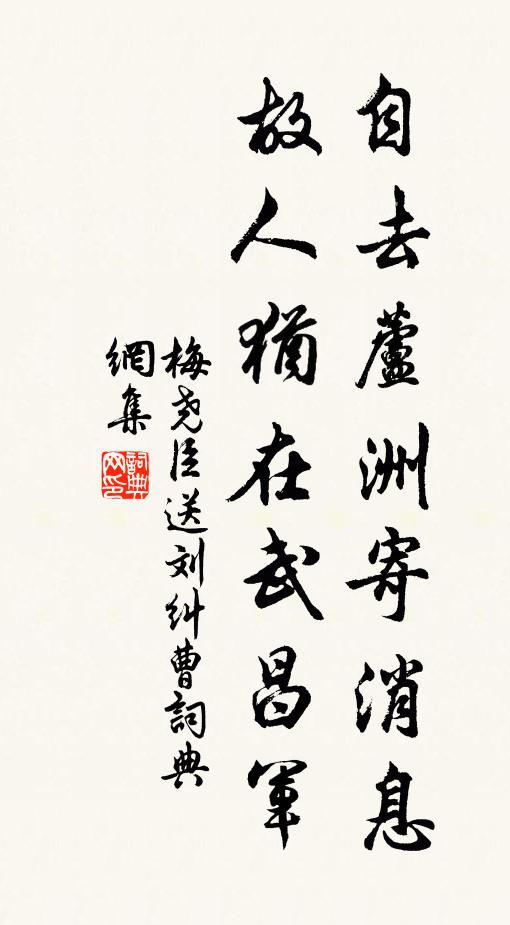 自去蘆洲寄消息
故人猶在武昌軍
梅尧臣送刘纠曹詞典
網集
詞典网印